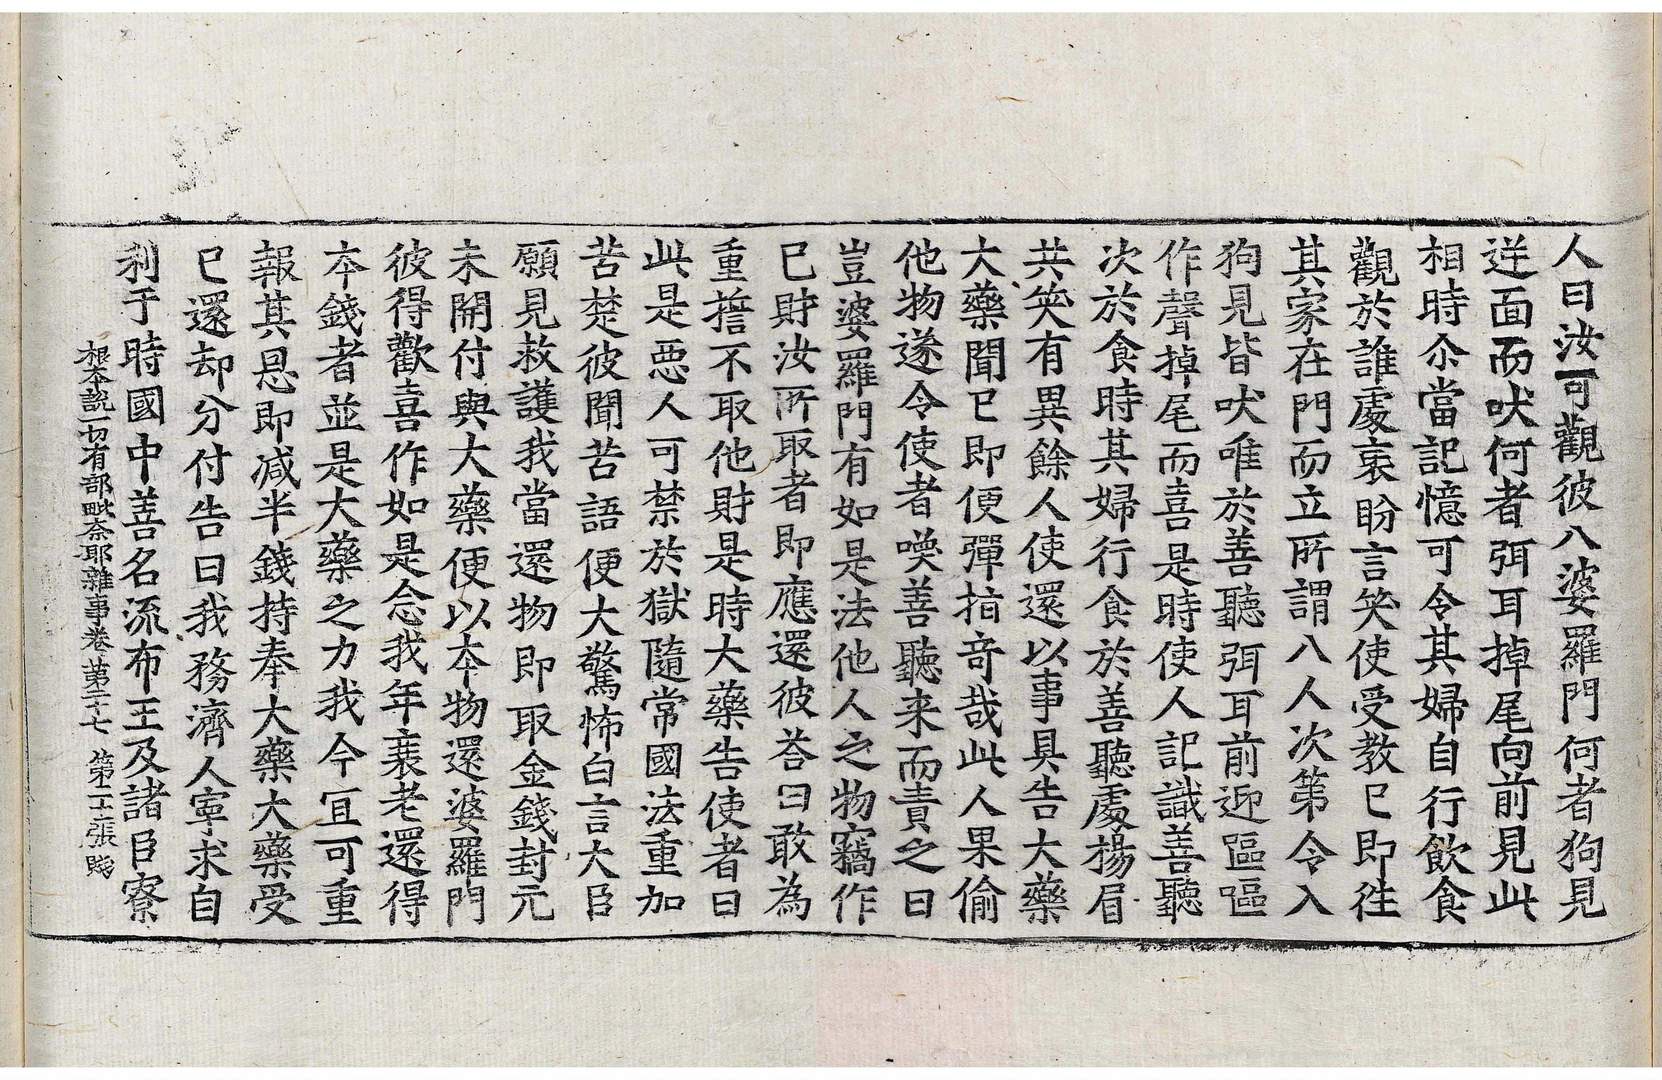 人曰汝可觀彼八婆羅門何者狗見
逆面而吠何者弭耳掉尾向前見此
相時尒當記憶可令其婦自行飲食
觀於誰處裏盼言笑使受教已即徃
其家在門而立所謂八人次第令入
狗見皆吠唯於善聽弭耳前迎區區
作聲掉尾而喜是時使人記識善聽
次於食時其婦行食於善聽處揚眉
共笑有異餘人使還以事具告大藥
大藥聞已即便彈指竒哉此人果偷
他物遂令使者喚善聽来而責之曰
豈婆羅門有如是法他人之物竊作
已財汝所取者即應還彼荅曰敢為
重擔不取他財是時大藥告使者曰
此是惡人可禁於獄隨常國法重加
苦楚彼聞苦語便大驚怖白言大臣
願見救護我當還物即取金錢封元
未開付與大藥便以本物還婆羅門
彼得歡喜作如是念我年衰老還得
本錢者並是大藥之力我今宜可重
報其恩即減半錢持奉大藥大藥受
已還却分付告曰我務濟人寧求自
利于時國中善名流布王及諸臣寮
根本說一切有部毗奈耶雜事卷第二十七 第二十二張